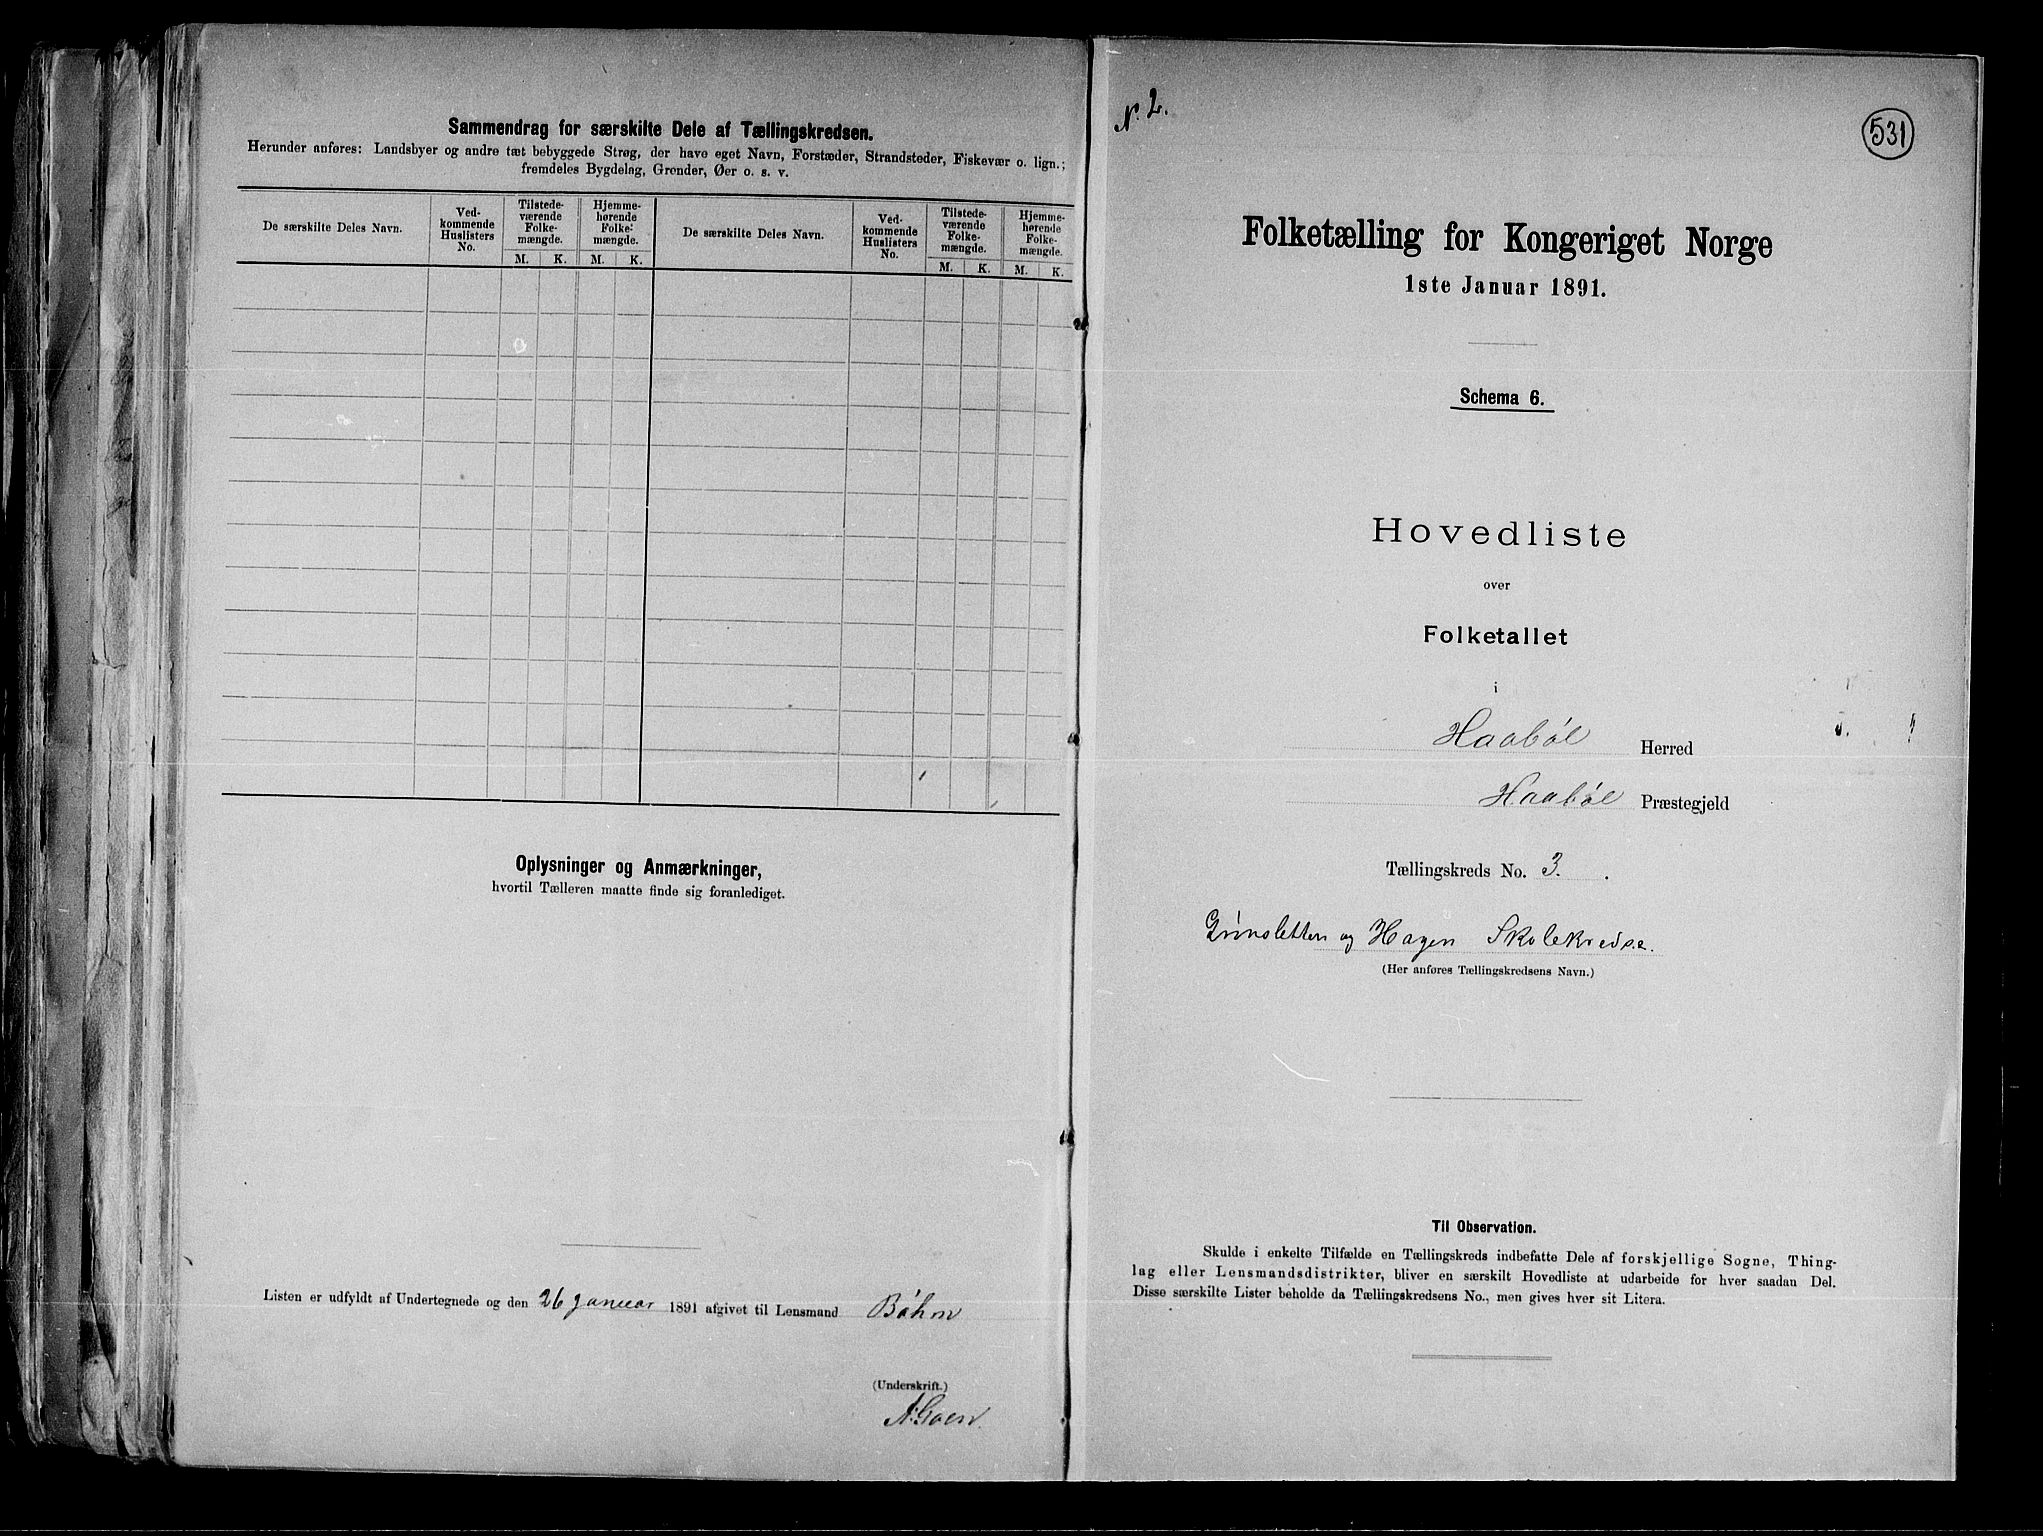 Sammendrag for særskilte Dele af Tællingskredsen.
Herunder anføres: Landsbyer og andre tæt bebyggede Strøg, der have eget Navn, Forstæder, Strandsteder, Fiskevær o. lign.;
fremdeles Bygdelag, Grender, Øer o. s. v.
De særskilte Deles Navn.
Ved-
kommende
Huslisters
No.
Tilstede-
værende
Folke-
mængde.
M. K.
Hjemme-
hørende
Folke-
mængde.
M. K.
De særskilte Deles Navn.
Ved-
kommende
Huslisters
No.
Tilstede-
værende
Folke-
mængde.
M. K.
Hjemme-
hørende
Folke-
mængde.
M. K.
Oplysninger og Anmærkninger,
hvortil Tælleren maatte finde sig foranlediget.
Listen er udfyldt af Undertegnede og den 26 Januar 1891 afgivet til Lensmand Bøhn
(Underskrift.)
N. 2.
531
Folketælling for Kongeriget Norge
1ste Januar 1891.
Schema 6.
Hovedliste
over
Folketallet
i
Haabøl Herred
Haabøl Præstegjeld
Tællingskreds No. 3.
og Hagen Skolekredse.
(Her anføres Tællingskredsens Navn.)
Til Observation.
Skulde i enkelte Tilfælde en Tællingskreds indbefatte Dele af forskjellige Sogne, Thing-
lag eller Lensmandsdistrikter, bliver en særskilt Hovedliste at udarbeide for hver saadan Del.
Disse særskilte Lister beholde da Tællingskredsens No., men gives hver sit Litera.